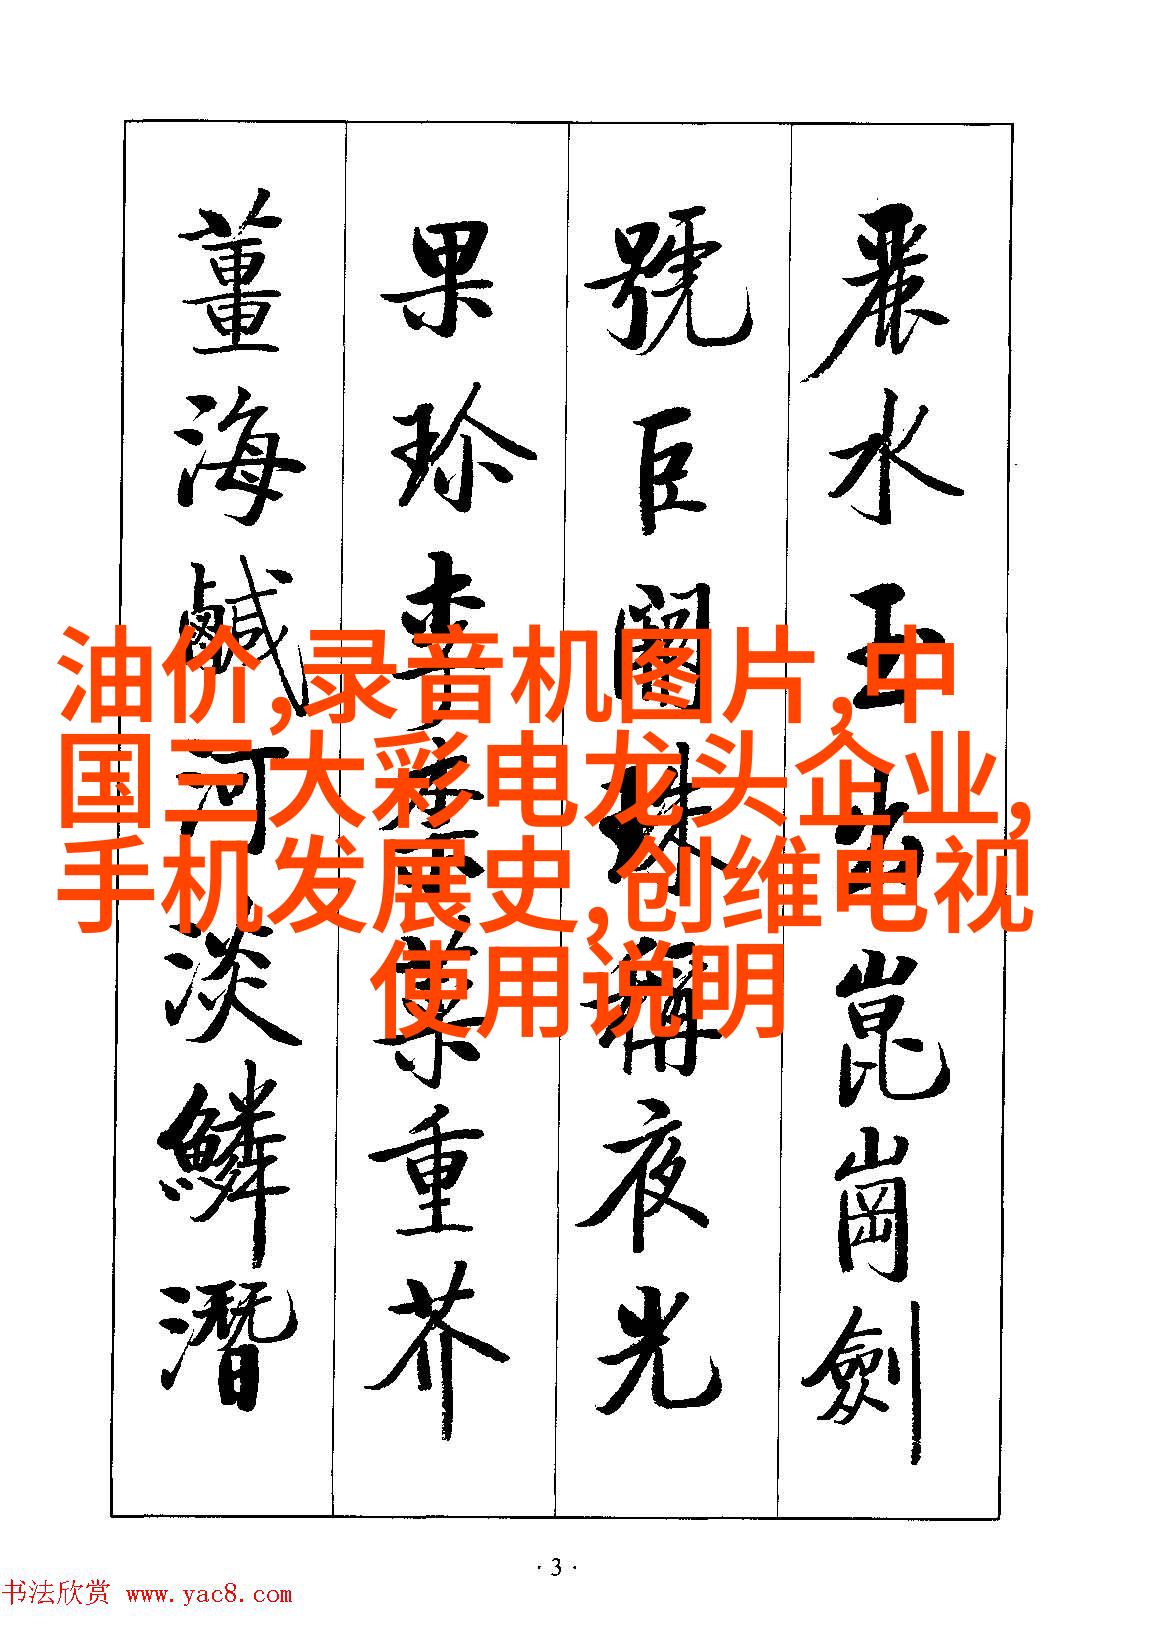 麗水玉出崑崗劍
號巨闕珠稱夜光
果珍李柰菜重芥
薑海鹹河淡鱗潛
油价,录音机图片,中
国三大彩电龙头企业,
手机发展史,创维电视
使用说明
·3·
书法欣赏 www.yac8.com